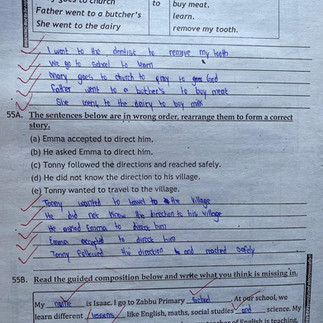 goes to church
to
buy meat.
Father went to a butcher's
learn.
She went to the dairy
remove my tooth.
I went to the dentist to remove my teeth
We go to school to learn
Mary goes to church to pray to God
Father went to a butcher's to buy meat
She to the dairy to buy milk
55A. The sentences below are in wrong order, rearrange them to form a correct
story.
(a) Emma accepted to direct him.
(b) He asked Emma to direct him.
(c) Tonny followed the directions and reached safely.
(d) He did not know the direction to his village.
(e) Tonny wanted to travel to the village.
Tonny wanted to travel to the village
He did not know the direction to his village
He asked Emma to direct him
Emma accepted to direct him
Tonny followed the direction and reached safely
55B. Read the guided composition below and write what you think is missing in.
My name is Isaac. I go to Zabbu Primary School. At our school, we
learn different lessons, like English, maths, social studies and science. My
of English is teaching,